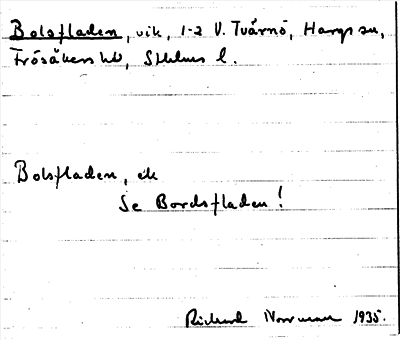 Bolsfladen, vik, 1-2 V. Tvärnö, Hargs sn,
Frösåkers hd, Sthlms l.
Bolsfladen, vik
Se Bordsfladen!
Richard Norrman 1935.